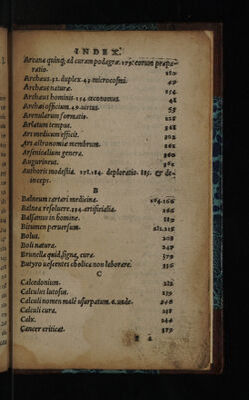 INDEX.
Arcana quinq; ad curam podagræ. 179. eorum præpa-
ratio. 180
Archæus. 52. duplex. 43 microcosmi. 49
Archæus naturæ. 154
Archæus hominis. 154. œconomus. 48
Archæi officium. 49. ortus. 55
Arenularum formatio.
Arlatum tempus.
Ars medicum efficit.
Ars astronomiæ membrum.
Arsenicalium genera.
Augurineus.
Authoris modestia. deploratio. 185. & de-
inceps.
B
Balneum tartari medicina. 184.166
Balnea resoluere. 194. artificialia. 166
Balsamus in homine. 189
Bitumen peruersum.
Bolus. 208
Boli natura. 248
Brunella quid, signa, cura. 379
Butyro uescentes cholica non laborare. 336
C
Calcedonium. 282
Calculus lutosus. 239
Calculi nomen male usurpatum. 6. unde. 240
Calculi cura. 238
Calx. 244
Cancer criticat. 389